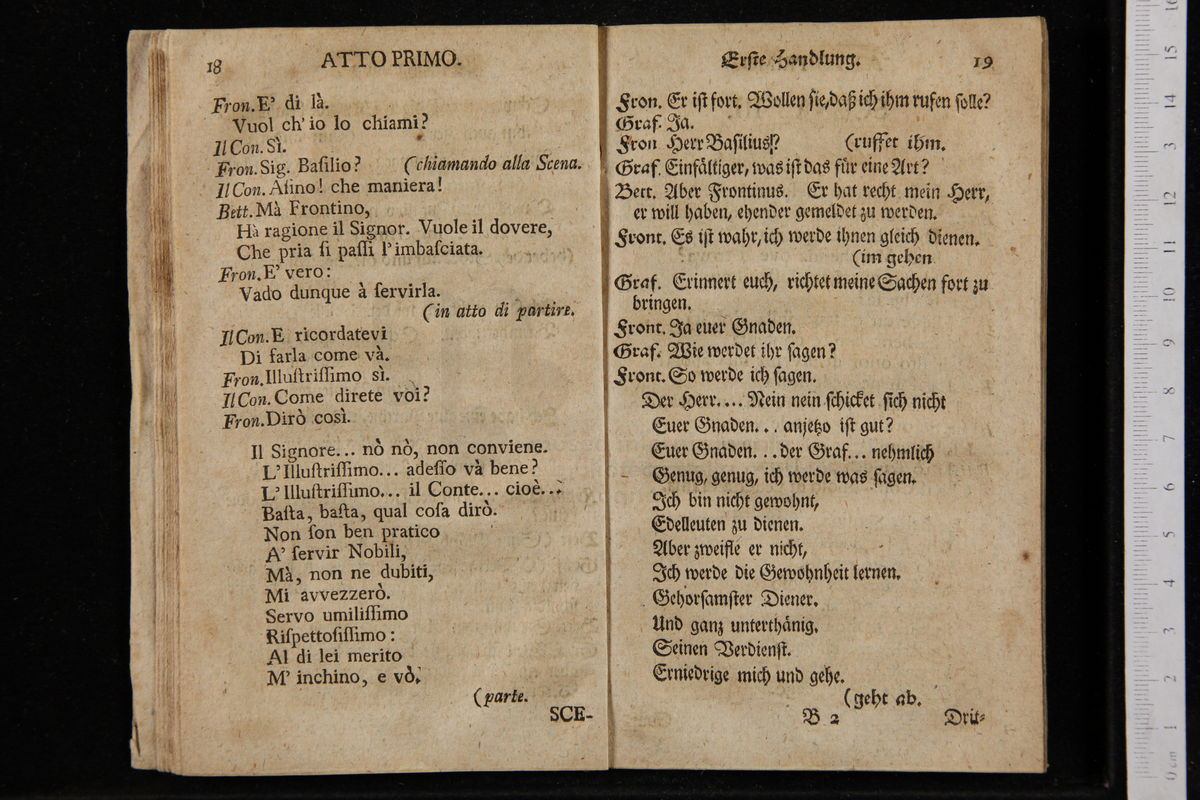 18 ATTO PRIMO.
Fron. E' di là.
Vuol ch' io lo chiami?
Il Con. Sì.
Fron. Sig. Baſilio? (chiamando alla Scena.
Il Con. Aſino! che maniera!
Bett. Mà Frontino,
Hà ragione il Signor. Vuole il dovere,
Che pria ſi paſſi l'imbaſciata.
Fron. E' vero:
Vado dunque à ſervirla.
(in atto di partire.
Il Con. E ricordatevi
Di farla come và.
Fron. Illuſtriſſimo sì.
Il Con. Come direte voi?
Fron. Dirò così.
Il Signore... nò nò, non conviene.
L'Illuſtriſſimo... adeſſo và bene?
L'Illuſtriſſimo... il Conte... cioè...
Baſta, baſta, qual coſa dirò.
Non ſon ben pratico
A' ſervir Nobili,
Mà, non ne dubiti,
Mi avvezzerò.
Servo umiliſſimo
Riſpettoſiſſimo:
Al di lei merito
M' inchino, e vò.
(parte.
SCE-
Erſte Handlung. 19
Fron. Er iſt fort. Wollen ſie, daß ich ihm rufen ſolle?
Graf. Ja.
Fron Herr Baſilius!? (ruffet ihm.
Graf. Einfältiger, was iſt das für eine Art?
Bett. Aber Frontinus. Er hat recht mein Herr,
er will haben, ehender gemeldet zu werden.
Front. Es iſt wahr, ich werde ihnen gleich dienen.
(im gehen
Graf. Erinnert euch, richtet meine Sachen fort zu
bringen.
Front. Ja euer Gnaden.
Graf. Wie werdet ihr ſagen?
Front. So werde ich ſagen.
Der Herr.... Nein nein ſchicket ſich nicht
Euer Gnaden... anjetzo iſt gut?
Euer Gnaden... der Graf... nehmlich
Genug, genug, ich werde was ſagen.
Ich bin nicht gewohnt,
Edelleuten zu dienen.
Aber zweifle er nicht,
Ich werde die Gewohnheit lernen.
Gehorſamſter Diener.
Und ganz unterthänig.
Seinen Verdienſt.
Erniedrige mich und gehe.
(geht ab.
B 2 Drit-
1 2 3 4 5 6 7 8 9 10 11 12 13 14 15 16
0 cm 1 2 3